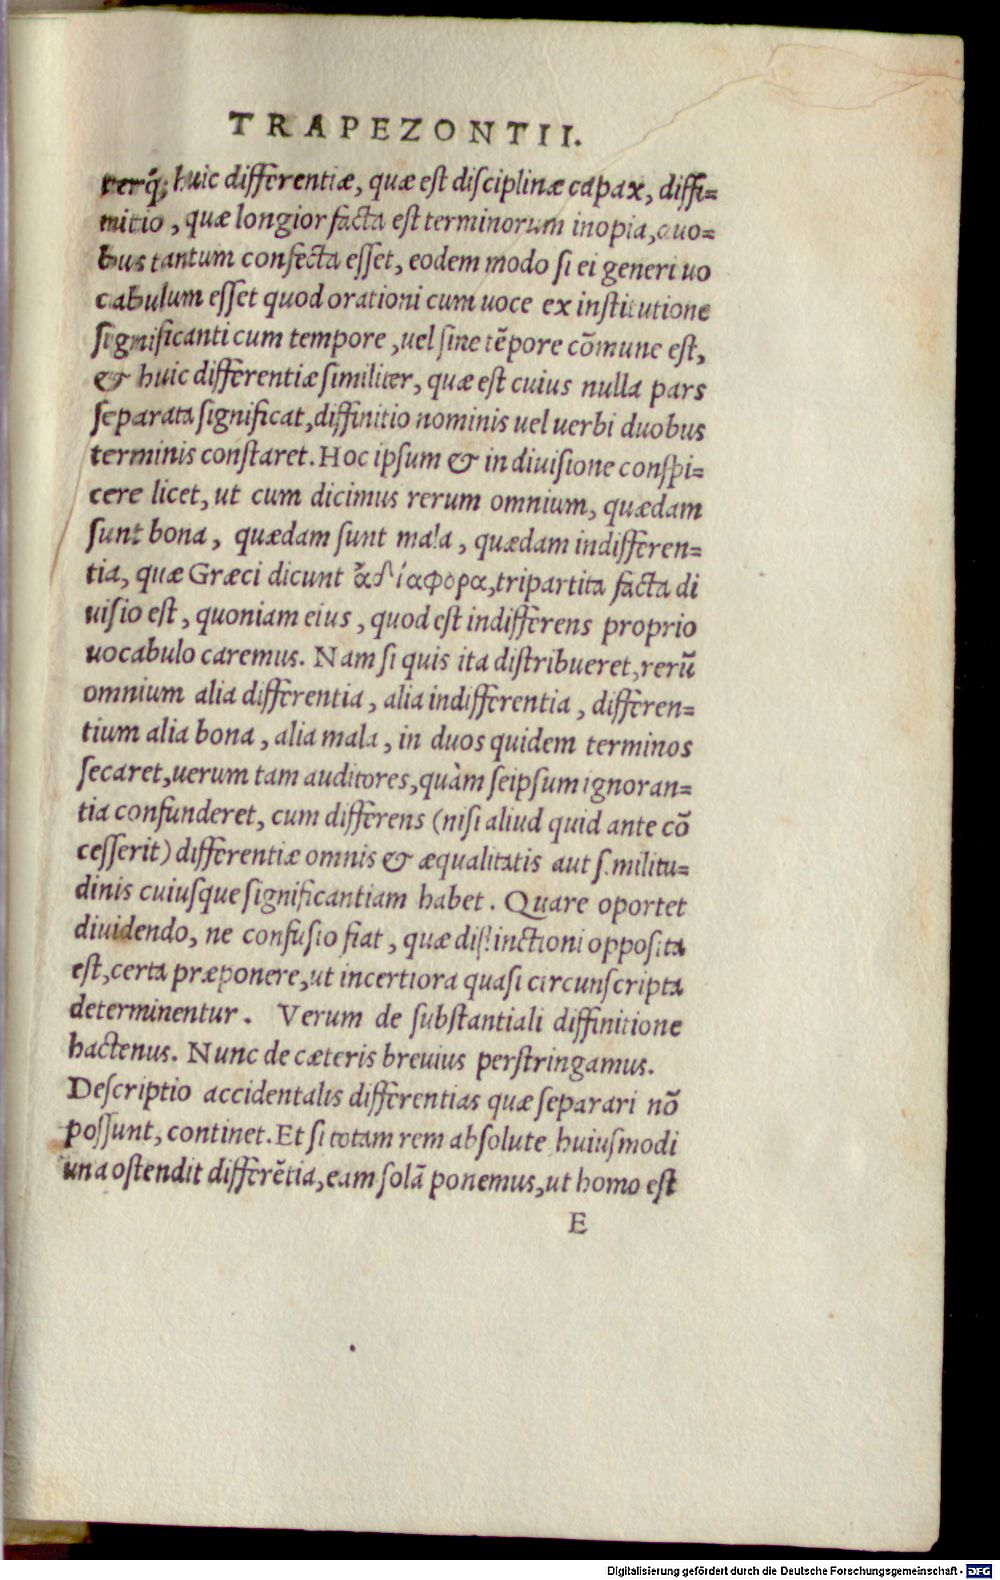 TRAPEZONTII.
terq́; huic differentiæ, quæ est disciplinæ capax, diffi=
nitio, quæ longior facta est terminorum inopia, duo=
bus tantum confecta esset, eodem modo si ei generi uo
cabulum esset quod orationi cum uoce ex institutione
significanti cum tempore, uel sine tēpore cōmune est,
& huic differentiæ similiter, quæ est cuius nulla pars
separata significat, diffinitio nominis uel uerbi duobus
terminis constaret. Hoc ipsum & in diuisione conspi=
cere licet, ut cum dicimus rerum omnium, quædam
sunt bona, quædam sunt mala, quædam indifferen=
tia, quæ Græci dicunt ἀδίαφορα, tripartita facta di
uisio est, quoniam eius, quod est indifferens proprio
uocabulo caremus. Nam si quis ita distribueret, rerū
omnium alia differentia, alia indifferentia, differen=
tium alia bona, alia mala, in duos quidem terminos
secaret, uerum tam auditores, quàm seipsum ignoran=
tia confunderet, cum differens (nisi aliud quid ante cō
cesserit) differentiæ omnis & æqualitatis aut similitu=
dinis cuiusque significantiam habet. Quare oportet
diuidendo, ne confusio fiat, quæ distinctioni opposita
est, certa præponere, ut incertiora quasi circunscripta
determinentur. Verum de substantiali diffinitione
hactenus. Nunc de cæteris breuius perstringamus.
Descriptio accidentalis differentias quæ separari nō
possunt, continet. Et si totam rem absolute huiusmodi
una ostendit differētia, eam solā ponemus, ut homo est
E
Digitalisierung gefördert durch die Deutsche Forschungsgemeinschaft - DFG